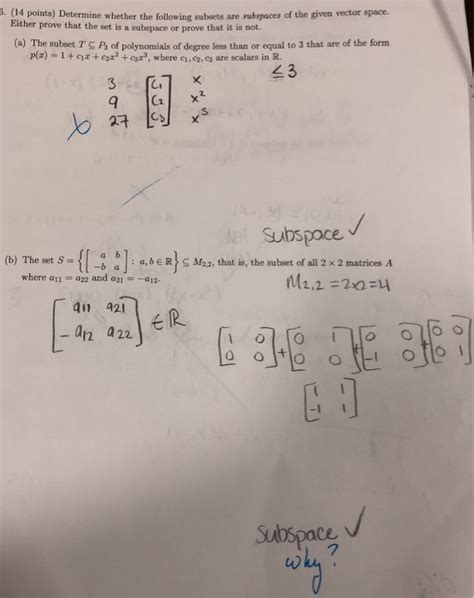 3. (14 points) Determine whether the following subsets are subspaces of the given vector space.
Either prove that the set is a subspace or prove that it is not.
(a) The subset T ⊆ P₃ of polynomials of degree less than or equal to 3 that are of the form
p(x) = 1 + c₁x + c₂x² + c₃x³, where c₁, c₂, c₃ are scalars in ℝ.
≤3
3 [C₁] x
9 [C₂] x²
27 [C₃] x³
Subspace ✓
(b) The set S = {[a b; -b a] : a, b ∈ ℝ} ⊆ M₂,₂, that is, the subset of all 2 × 2 matrices A
where a₁₁ = a₂₂ and a₂₁ = −a₁₂.
M₂,₂ = 2x2 = 4
[a₁₁ a₂₁; -a₁₂ a₂₂] ∈ ℝ
[1 0; 0 0] + [0 1; 0 0] + [0 0; -1 0] + [0 0; 0 1]
[1 1; -1 1]
Subspace ✓
why?